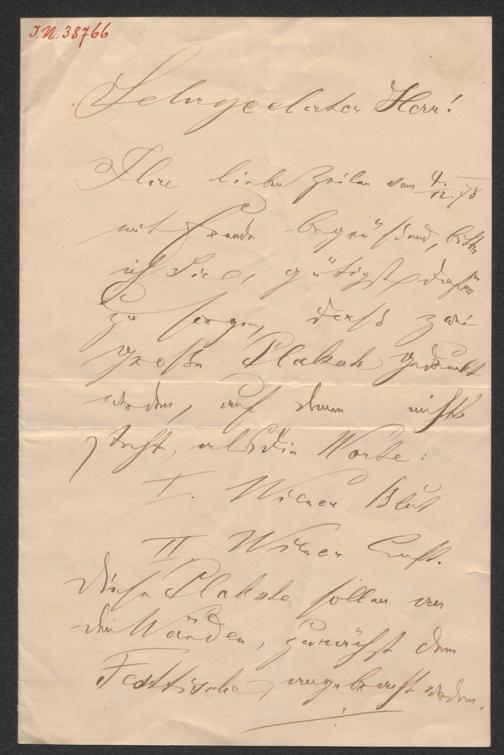 I.N. 38766
Sehrgeehrter Herr!
Ihre lieben Zeilen vom 4./12. 78
mit Freude begrüßend, bitte
ich Sie, gütigst dafür
zu sorgen, dass zwei
große Plakate gedruckt
werden, auf denen nichts
steht, als die Worte:
I. Wiener Blut
II. Wiener Luft.
Diese Plakate sollen an
den Wänden, zunächst dem
Festtische, angebracht werden.